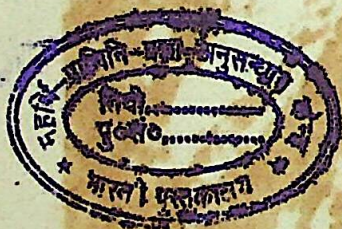 महर्षि-पाणिनि-
अनुसन्धान
तिथी..............
पु०सं०..............
भारती पुस्तकालय